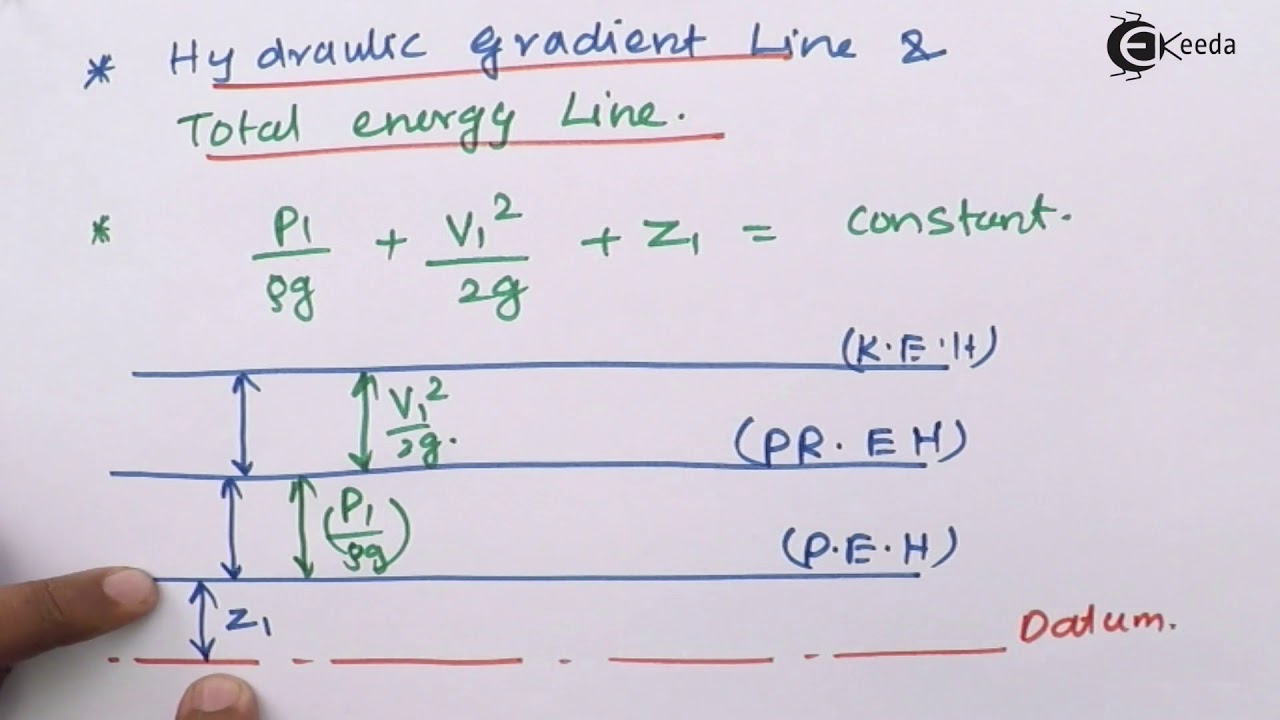 * Hydraulic gradient Line &
Total energy Line.
EKeeda
* P1/ρg + V1²/2g + Z1 = constant.
(K.E.H)
V1²/2g.
(PR.EH)
(P1/ρg)
(P.E.H)
Z1
Datum.